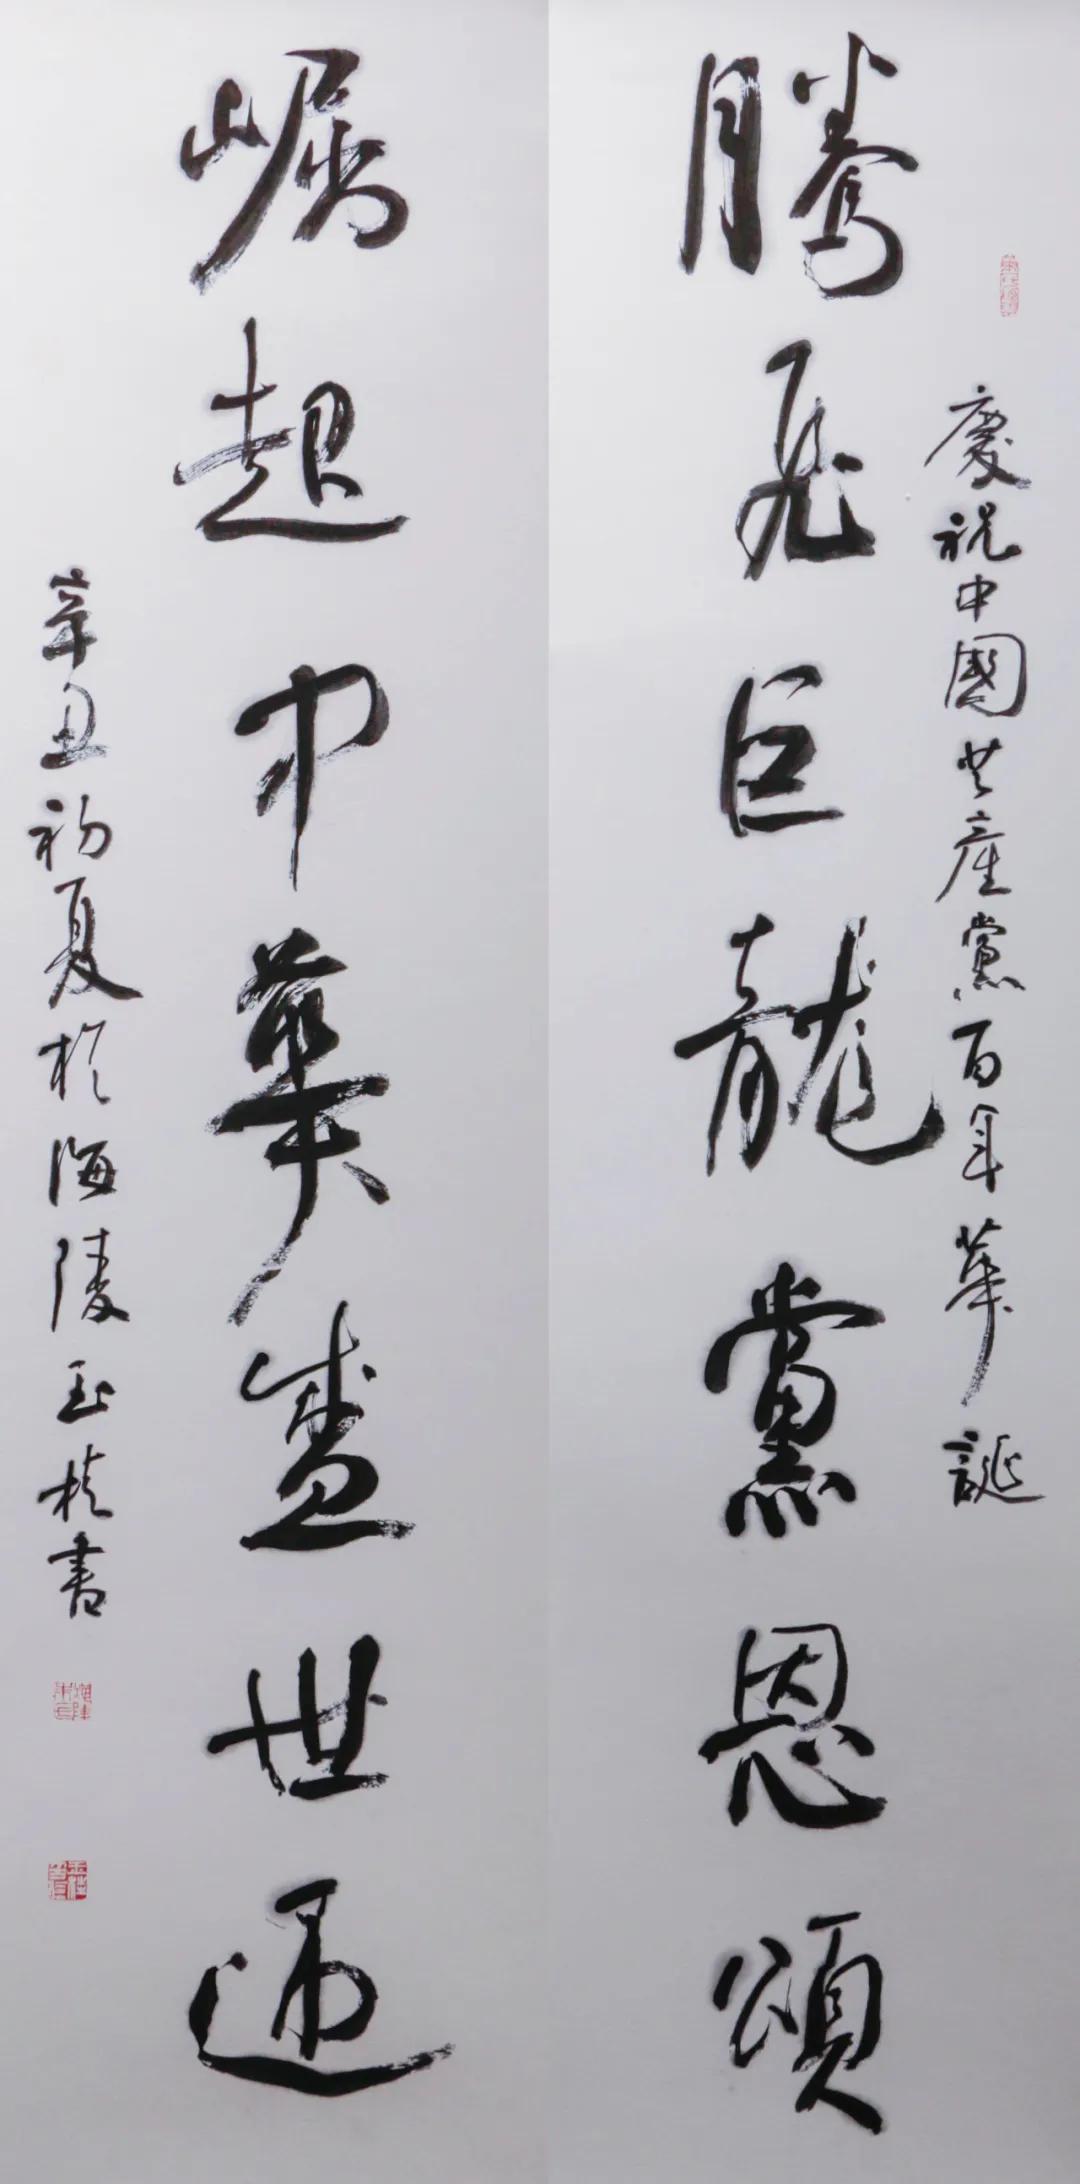 慶祝中國共產黨百年華誕
騰飛巨龍黨恩頌
崛起中華盛世通
辛丑初夏於海陵玉書